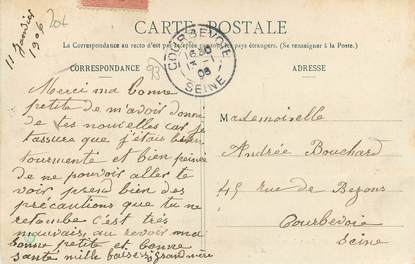 CARTE POSTALE
La Correspondance au recto n'est pas acceptée par tous les pays étrangers. (Se renseigner à la Poste.)
CORRESPONDANCE
ADRESSE
11 Janvier
1906
COURBEVOIE
SEINE
Merci ma bonne
petite de m'avoir donné
de tes nouvelles car je
tassure que j'étais bien
tourmente et bien peinée
de ne pouvoir aller te
voir prend bien des
précautions que tu ne
retombe c'est très
mauvais, au revoir ma
bonne petite et bonne
santé mille baisers grand-mère
Mademoiselle
Andrée Bouchard
45 rue de Bezons
Courbevoie
Seine